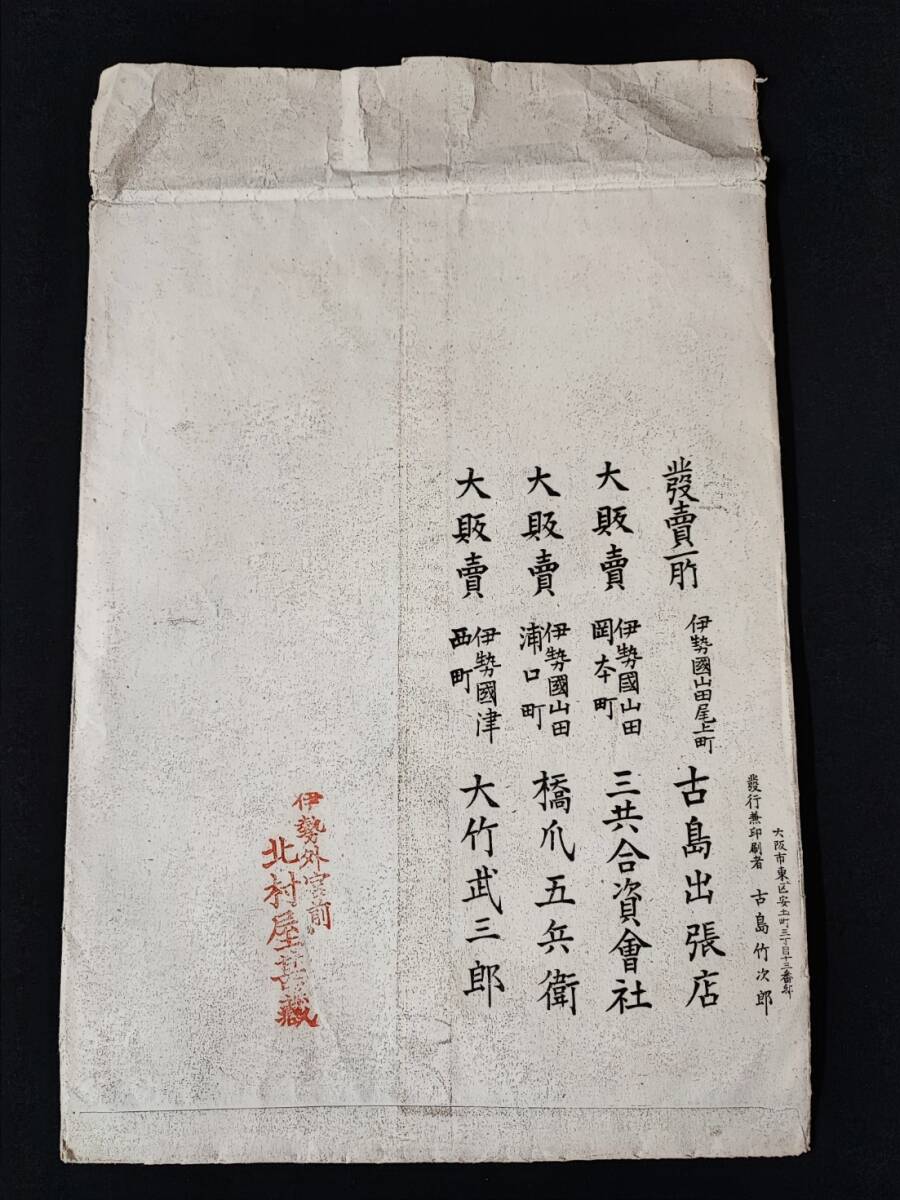 大阪市東区安土町三丁目十三番邸
發行兼印刷者 古島竹次郎
發賣所 伊勢國山田尾上町 古島出張店
大販賣 伊勢國山田岡本町 三共合資會社
大販賣 伊勢國山田浦口町 橋爪五兵衛
大販賣 伊勢國津西町 大竹武三郎
伊勢外宮前
北村屋甚藏